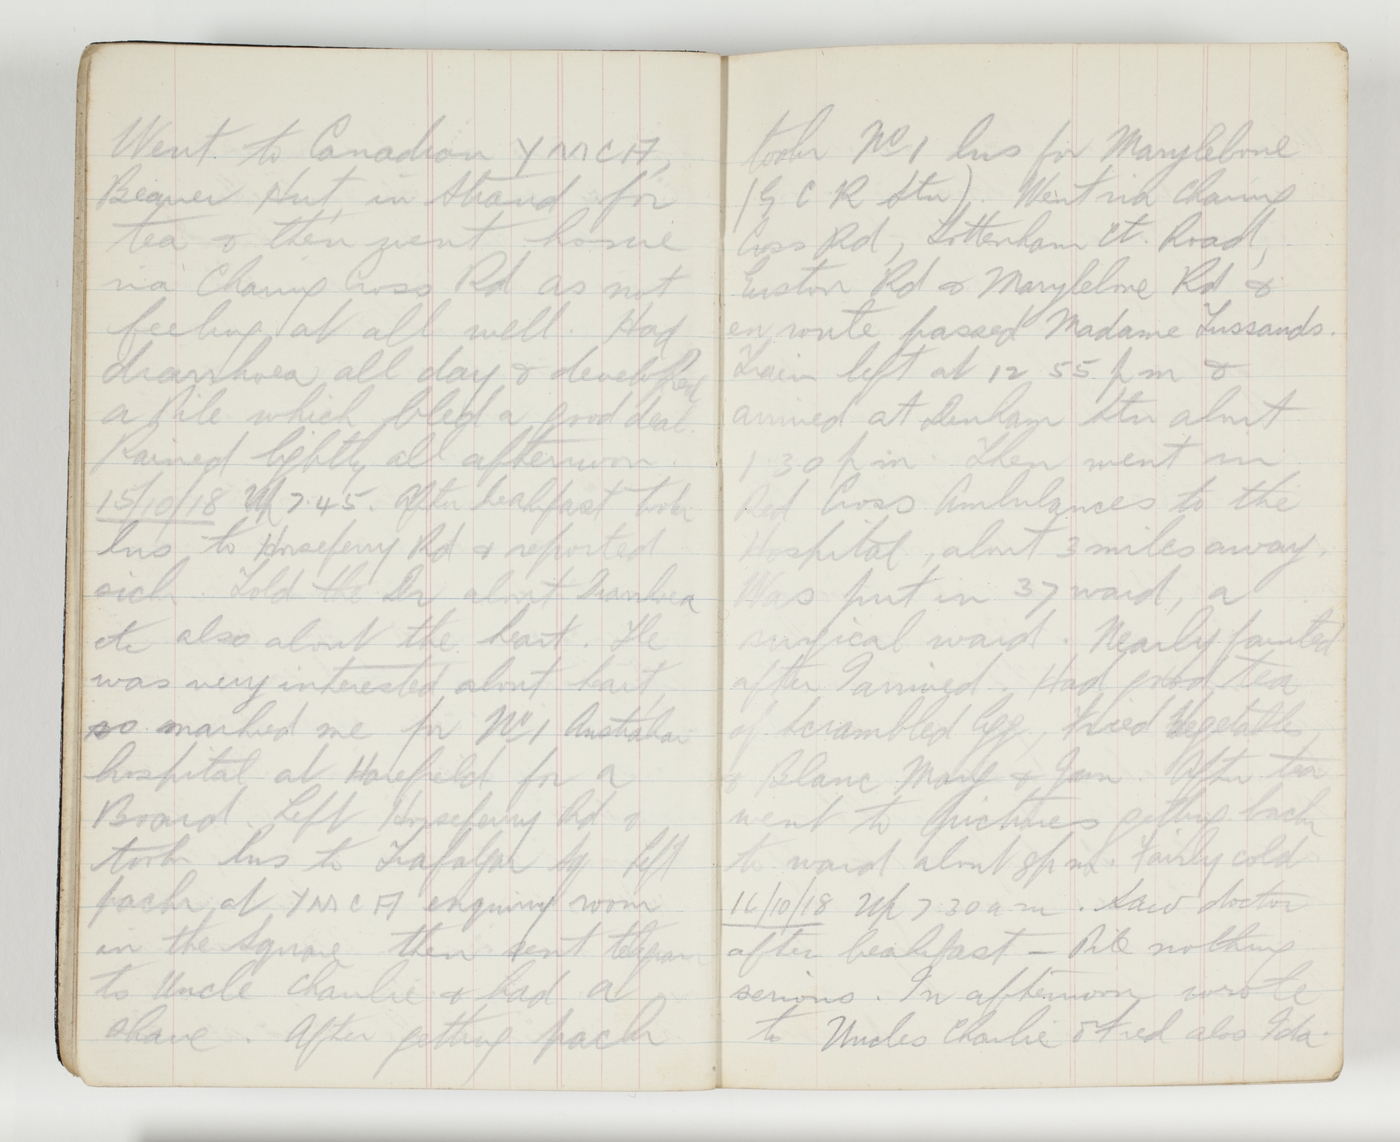 Went to Canadian YMCA,
Beaver Hut, in Strand for
tea & then went home
via Charing Cross Rd as not
feeling at all well. Had
diarrhoea all day & developed
a pile which bled a good deal.
Rained lightly all afternoon.
15/10/18 Up 7.45. After breakfast took
bus to Horseferry Rd & reported
sick. Told the Dr about Diarrhoea
etc also about the heart. He
was very interested about heart,
so marked me for No 1 Australian
hospital at Harefield for a
Board. Left Horseferry Rd &
took bus to Trafalgar Sq left
pack at YMCA enquiry room
in the Square then sent telegram
to Uncle Charlie & had a
shave. After getting pack
took No 1 bus for Marylebone
(G C R Stn). Went via Charing
Cross Rd, Tottenham Ct. Road,
Euston Rd & Marylebone Rd &
en route passed Madame Tussauds.
Train left at 12 55 p m &
arrived at Denham Stn about
1 30 p m. Then went in
Red Cross Ambulances to the
Hospital, about 3 miles away.
Was put in 37 ward, a
surgical ward. Nearly fainted
after I arrived. Had good tea
of scrambled Egg, Fried Vegetables,
& Blanc Mang & Jam. After tea
went to pictures getting back
to ward about 8 p m. Fairly cold
16/10/18 Up 7 30 a m. Saw doctor
after breakfast - Pile nothing
serious. In afternoon wrote
to Uncles Charlie & Fred also Ida.